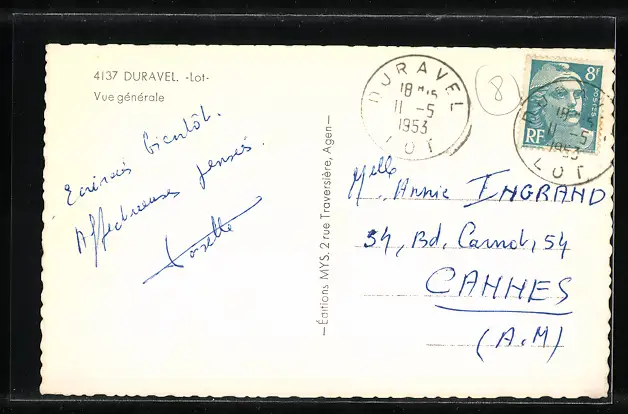 4137 DURAVEL. -Lot-
Vue générale
Ecrirais bientôt.
Affectueuses pensées.
Josette
—Editions MYS, 2 rue Traversière, Agen—
DURAVEL
18 H 15
11 -5
1953
LOT
8
8F
POSTES
RF
18
11 -5
1953
LOT
Melle Annie INGRAND
54, Bd. Carnot, 54
CANNES
(A.M)